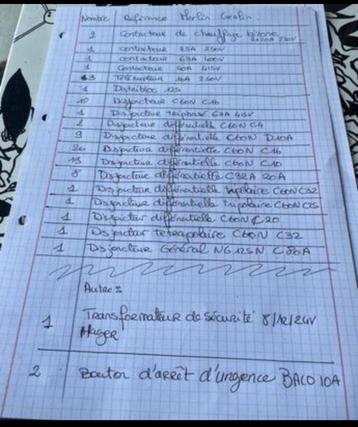 Nombre Référence Merlin Gerin
2 Contacteur de chauffage bizone
1 contacteur 25A 250V
1 contacteur 63A 400V
1 Contacteur 40A 415V
3 Télérupteur 16A 250V
1 Distribloc 125
10 Disjoncteur C60N C16
1 Disjoncteur triphasé 63A 415V
1 Disjoncteur différentielle C60N C4
9 Disjoncteur différentielle C60N D40A
26 Disjoncteur différentielle C60N C16
19 Disjoncteur différentielle C60N C10
8 Disjoncteur différentielle C32A 20A
1 Disjoncteur différentielle tripolaire C60N C32
1 Disjoncteur différentielle tripolaire C60N C25
1 Disjoncteur différentielle C60N C20
1 Disjoncteur tetrapolaire C60N C32
1 Disjoncteur Général NG 125N C80A
Autre =
1 Transformateur de sécurité 8/12/24V
Hager
2 Bouton d'arrêt d'urgence BACO 10A